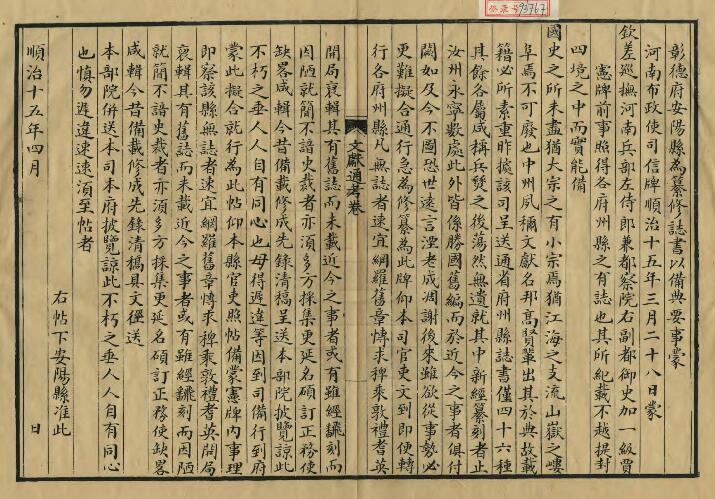 登录号93767
彰德府安陽縣為纂修誌書以備典要事蒙
河南布政使司信牌順治十五年三月二十八日蒙
欽差巡撫河南兵部左侍郎兼都察院右副都御史加一級賈
憲牌前事照得各府州縣之有誌也其所紀載不越提封
四境之中而實能備
國史之所未盡猶大宗之有小宗焉猶江海之支流山嶽之嶁
阜焉不可廢也中州夙稱文獻名邦髙賢輩出其於典故載
籍必所素重昨據該司呈送通省府州縣誌書僅四十六種
其餘各屬咸稱兵燹之後蕩然無遺就其中新經纂刻者止
汝州永寧數處此外皆係勝國舊編而於近今之事者俱付
闕如及今不圖恐世遠言湮老成凋謝後來雖欲從事勢必
更難擬合通行急為修纂為此牌仰本司官吏文到即便轉
行各府州縣凡無誌者速宜網羅舊章慱求稗乘敦禮耆英
文獻通考卷
開局裒輯其有舊誌而未載近今之事者或有雖經鋟刻而
因陋就簡不諳史裁者亦湏多方採集更延名碩訂正務使
缺畧咸輯今昔備載修成先錄清稿呈送本部院披覽諒此
不朽之垂人人自有同心也毋得遲違等因到司備行到府
蒙此擬合就行為此帖仰本縣官吏照帖備蒙憲牌内事理
即察該縣無誌者速宜網羅舊章慱求稗乘敦禮耆英開局
裒輯其有舊誌而未載近今之事者或有雖經鋟刻而因陋
就簡不諳史裁者亦湏多方採集更延名碩訂正務使缺畧
咸輯今昔備載修成先錄清稿具文徑送
本部院併送本司本府披覽諒此不朽之垂人人自有同心
也慎勿遲違速速湏至帖者
右帖下安陽縣准此
順治十五年四月 日